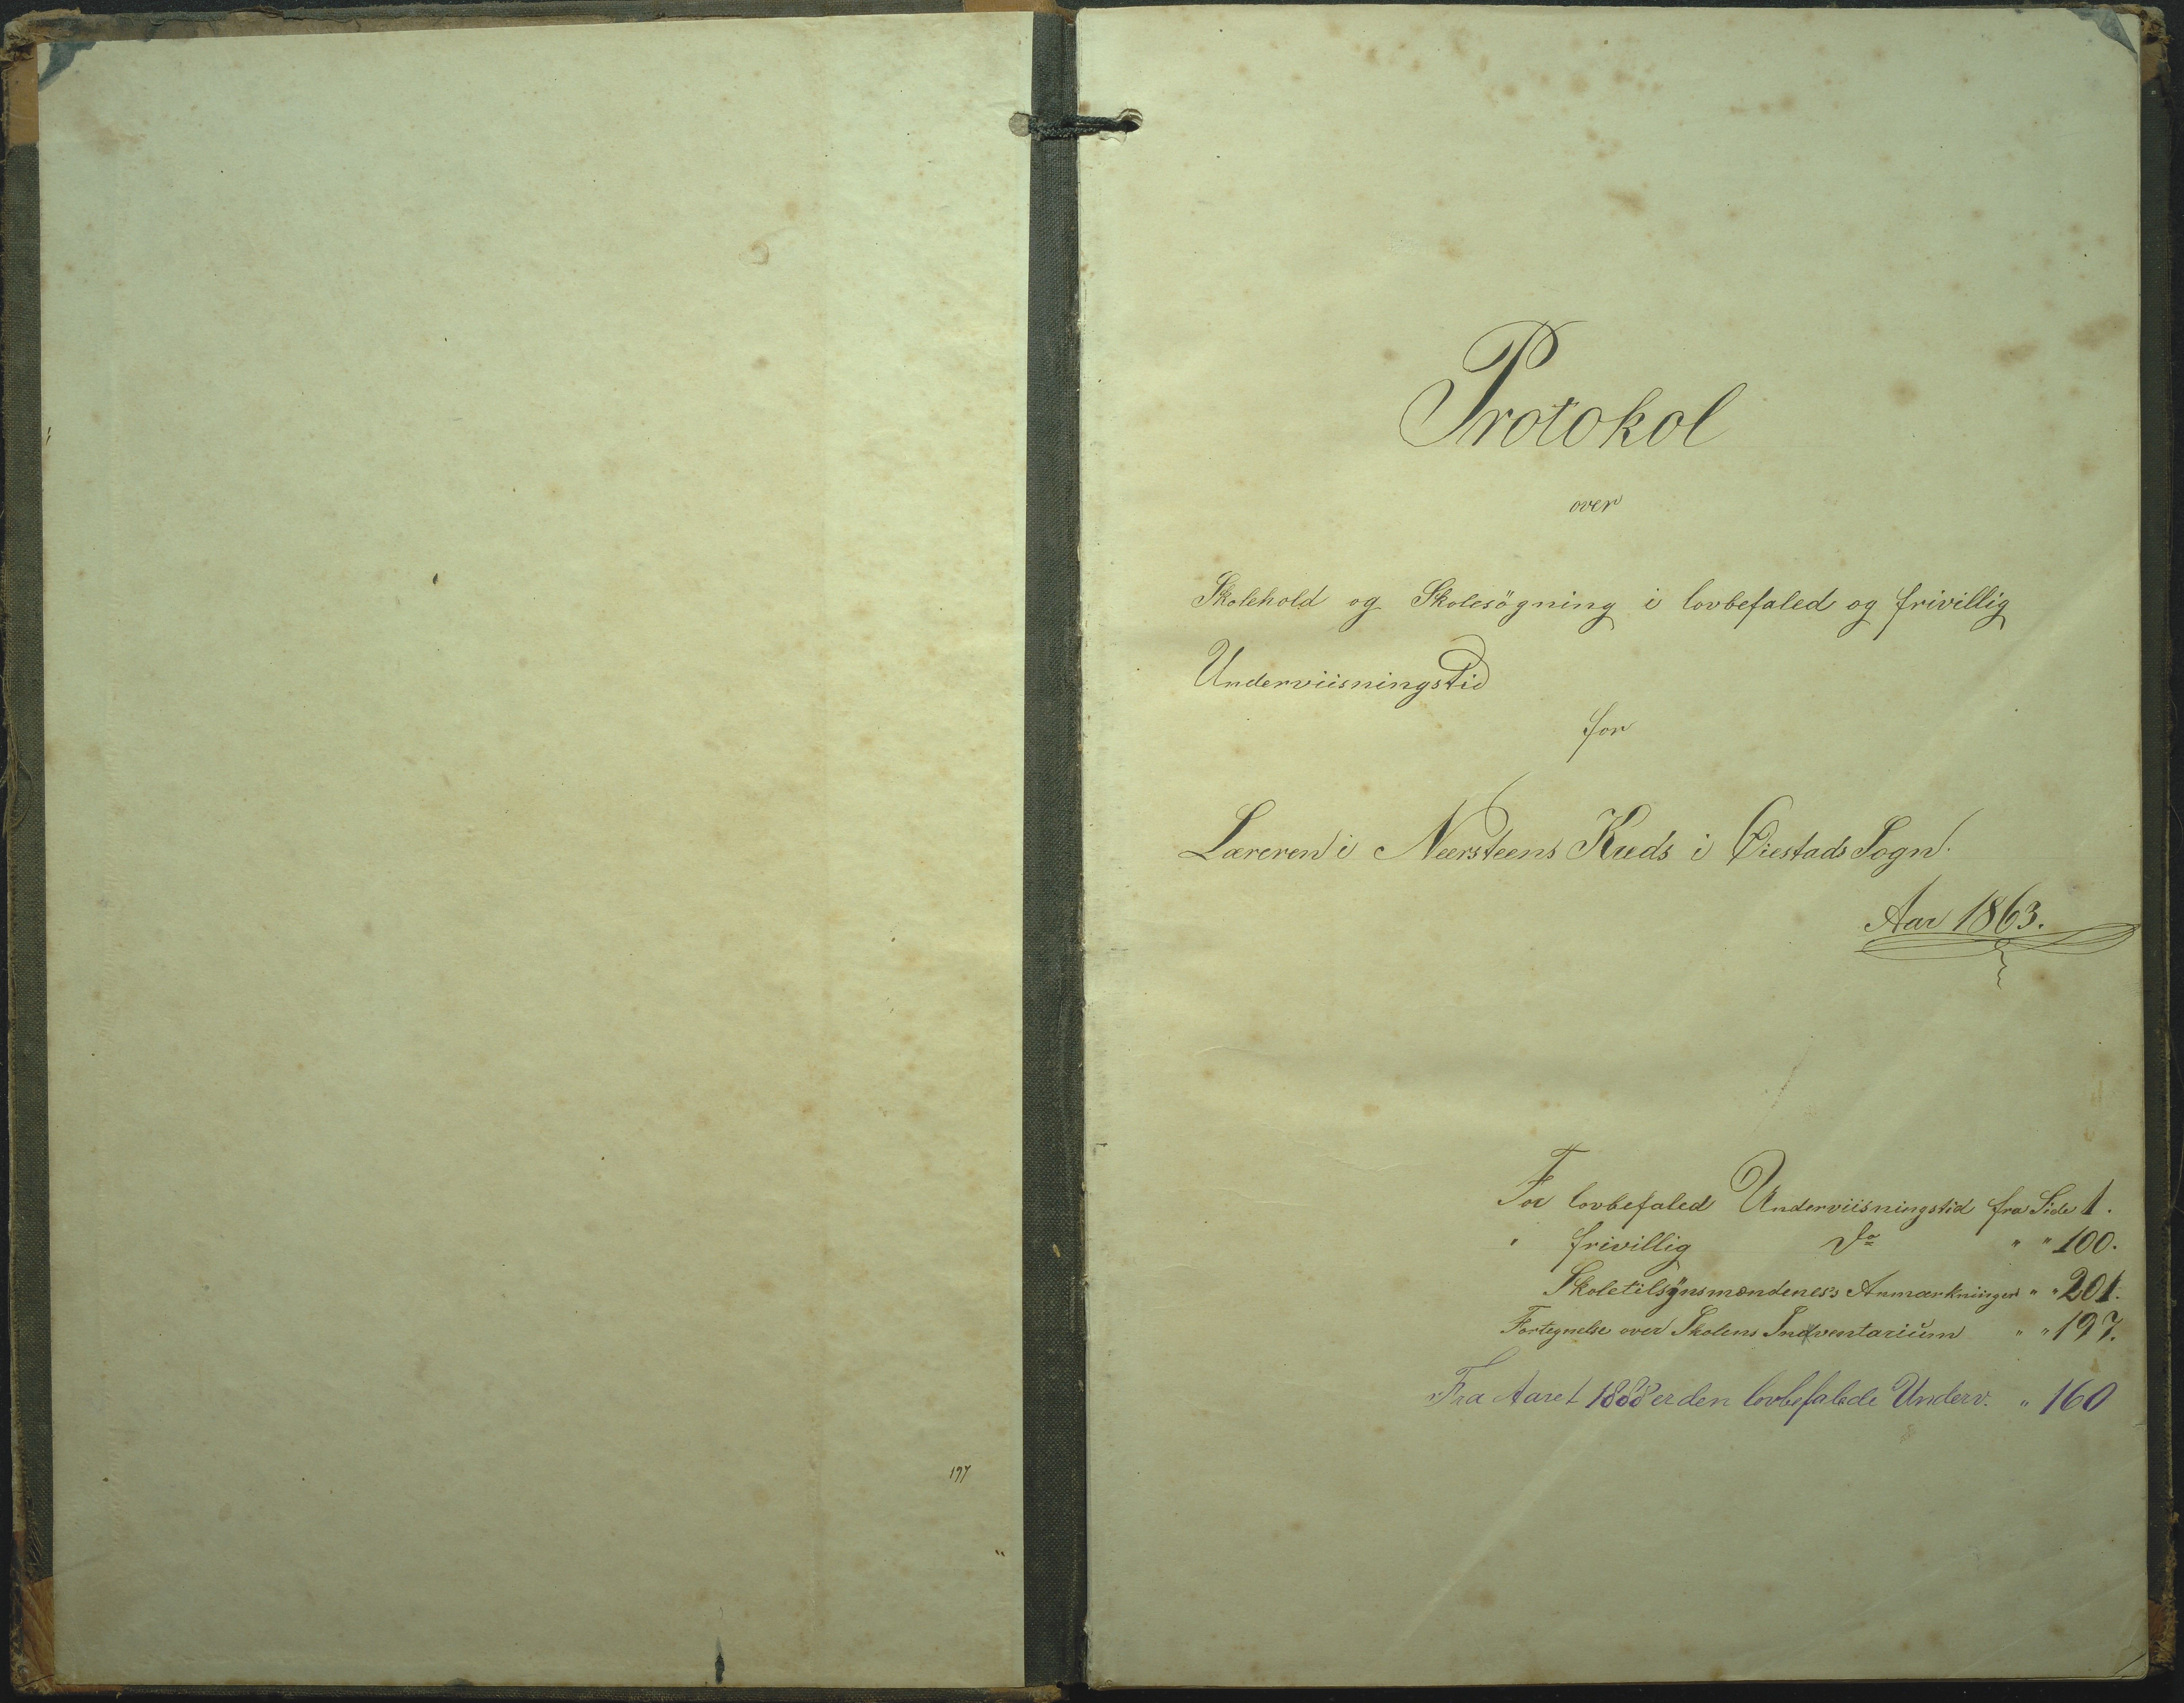 Protokol
over
Skolehold og Skolesögning i lovbefaled og frivillig
Underviisningstid
for
Læreren i Neersteens Kreds i Øiestads Sogn.
Aar 1863.
For lovbefaled Underviisningstid fra Side 1.
" frivillig Do " " 100.
Skoletilsynsmændenes's Anmærkninger " " 201.
Fortegnelse over Skolens Inventarium " " 197.
Fra Aaret 1888 er den lovbefalede Underv. " 160
197